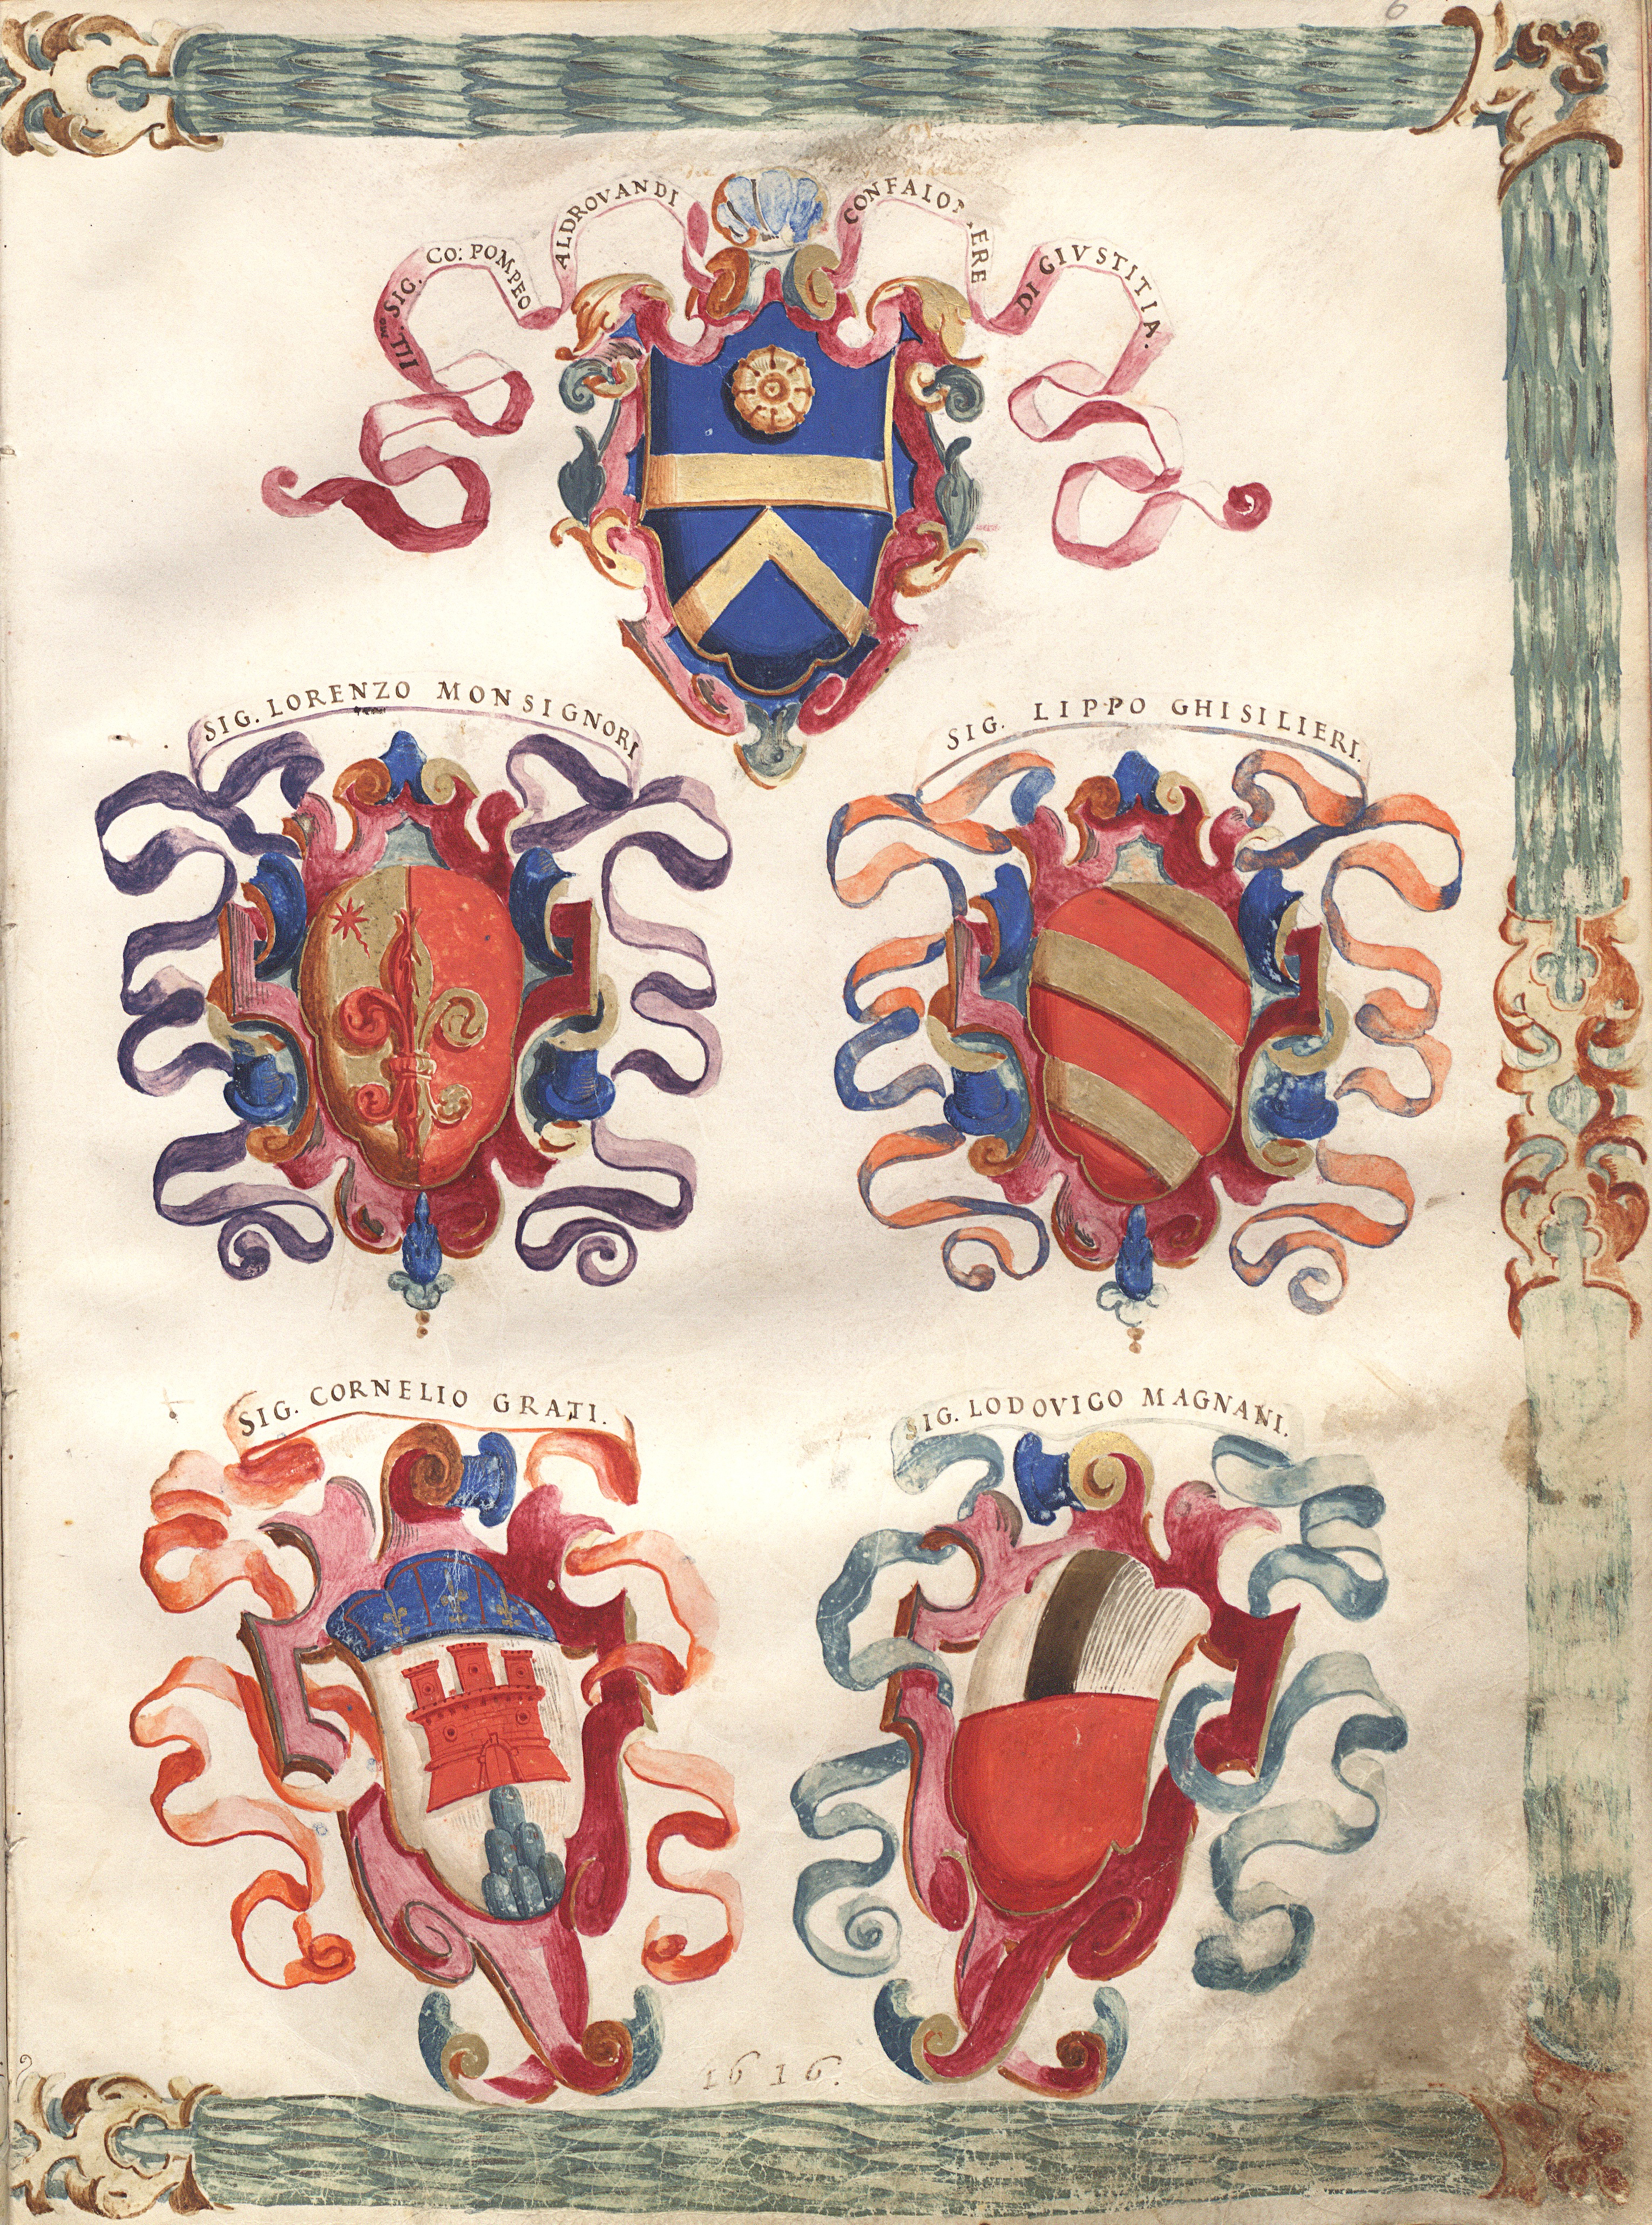 6
ILL.mo SIG. CO: POMPEO ALDROVANDI CONFALO ERE DI GIVSTITIA.
SIG. LORENZO MONSIGNORI
SIG. LIPPO GHISILIERI.
SIG. CORNELIO GRATI.
SIG. LODOVICO MAGNANI.
1616.